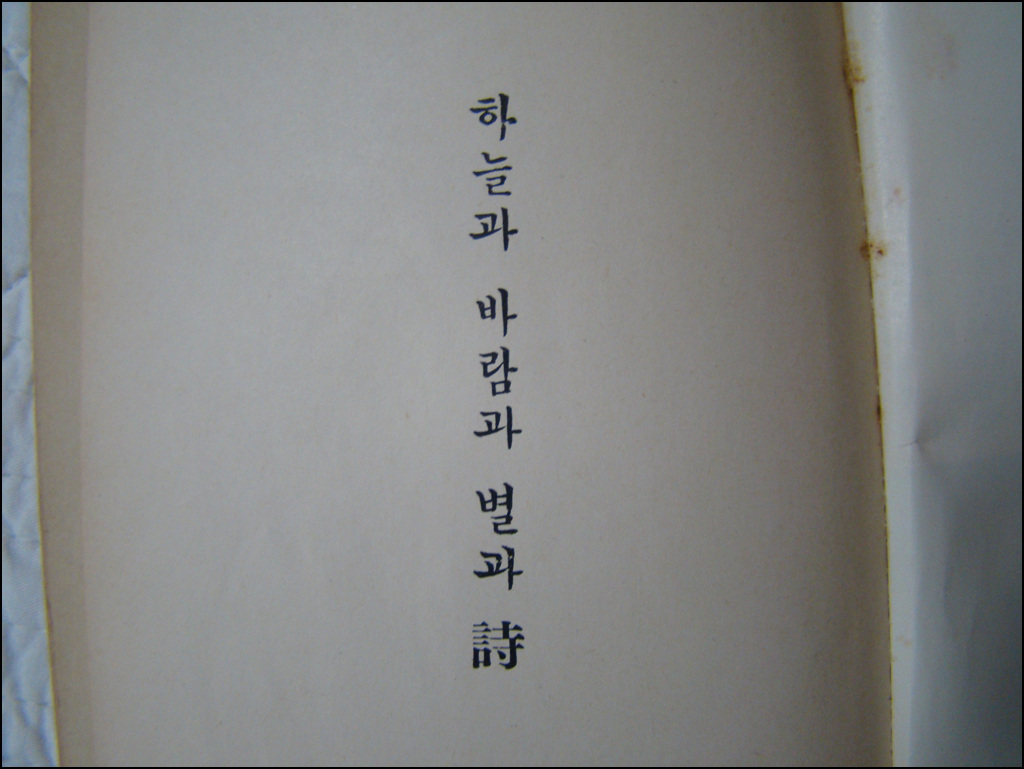 하늘과 바람과 별과 詩